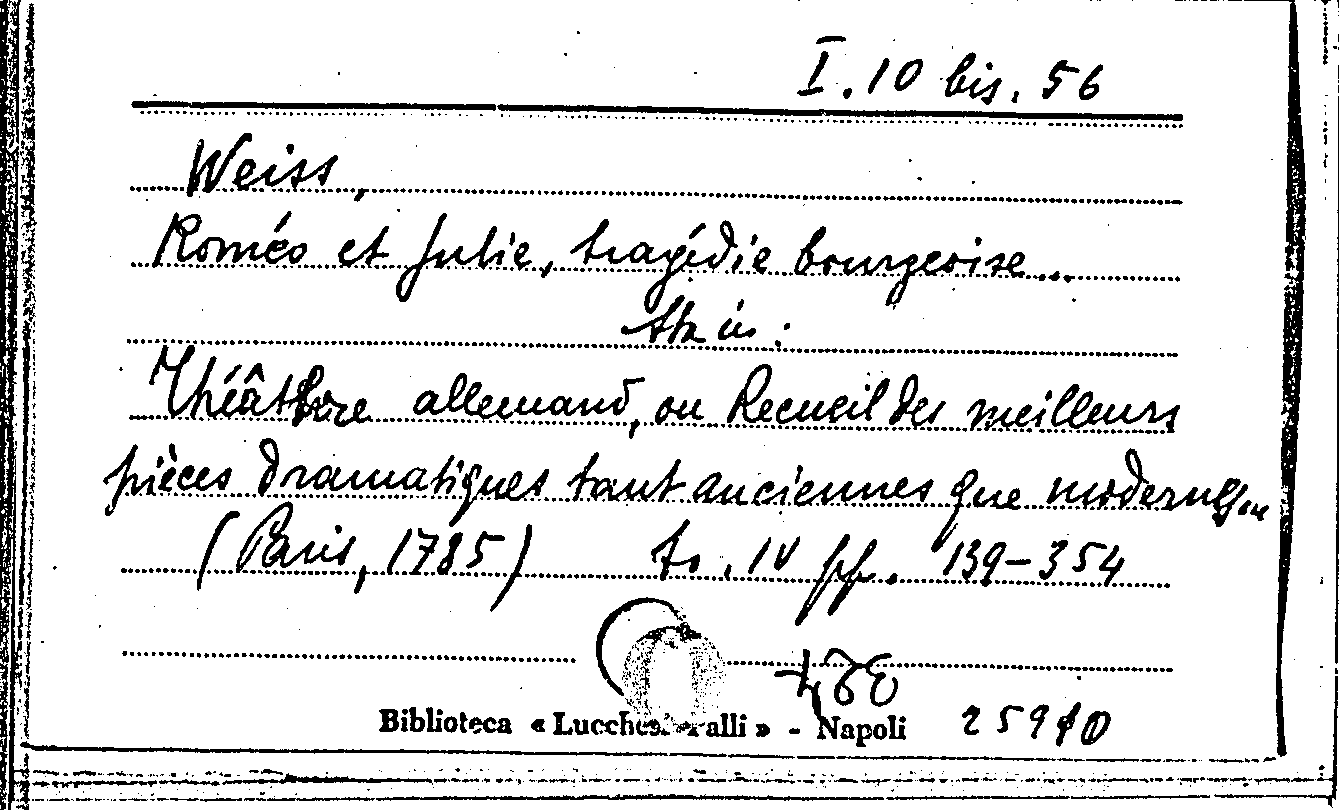 I. 10 bis. 56
Weiss,
Roméo et Julie, tragédie bourgeoise...
in:
Théâtre allemand, ou Recueil des meilleurs
pièces dramatiques tant anciennes que modernes
(Paris, 1785) to. IV pp. 139-354
Biblioteca « Lucchesi Palli » - Napoli 25910